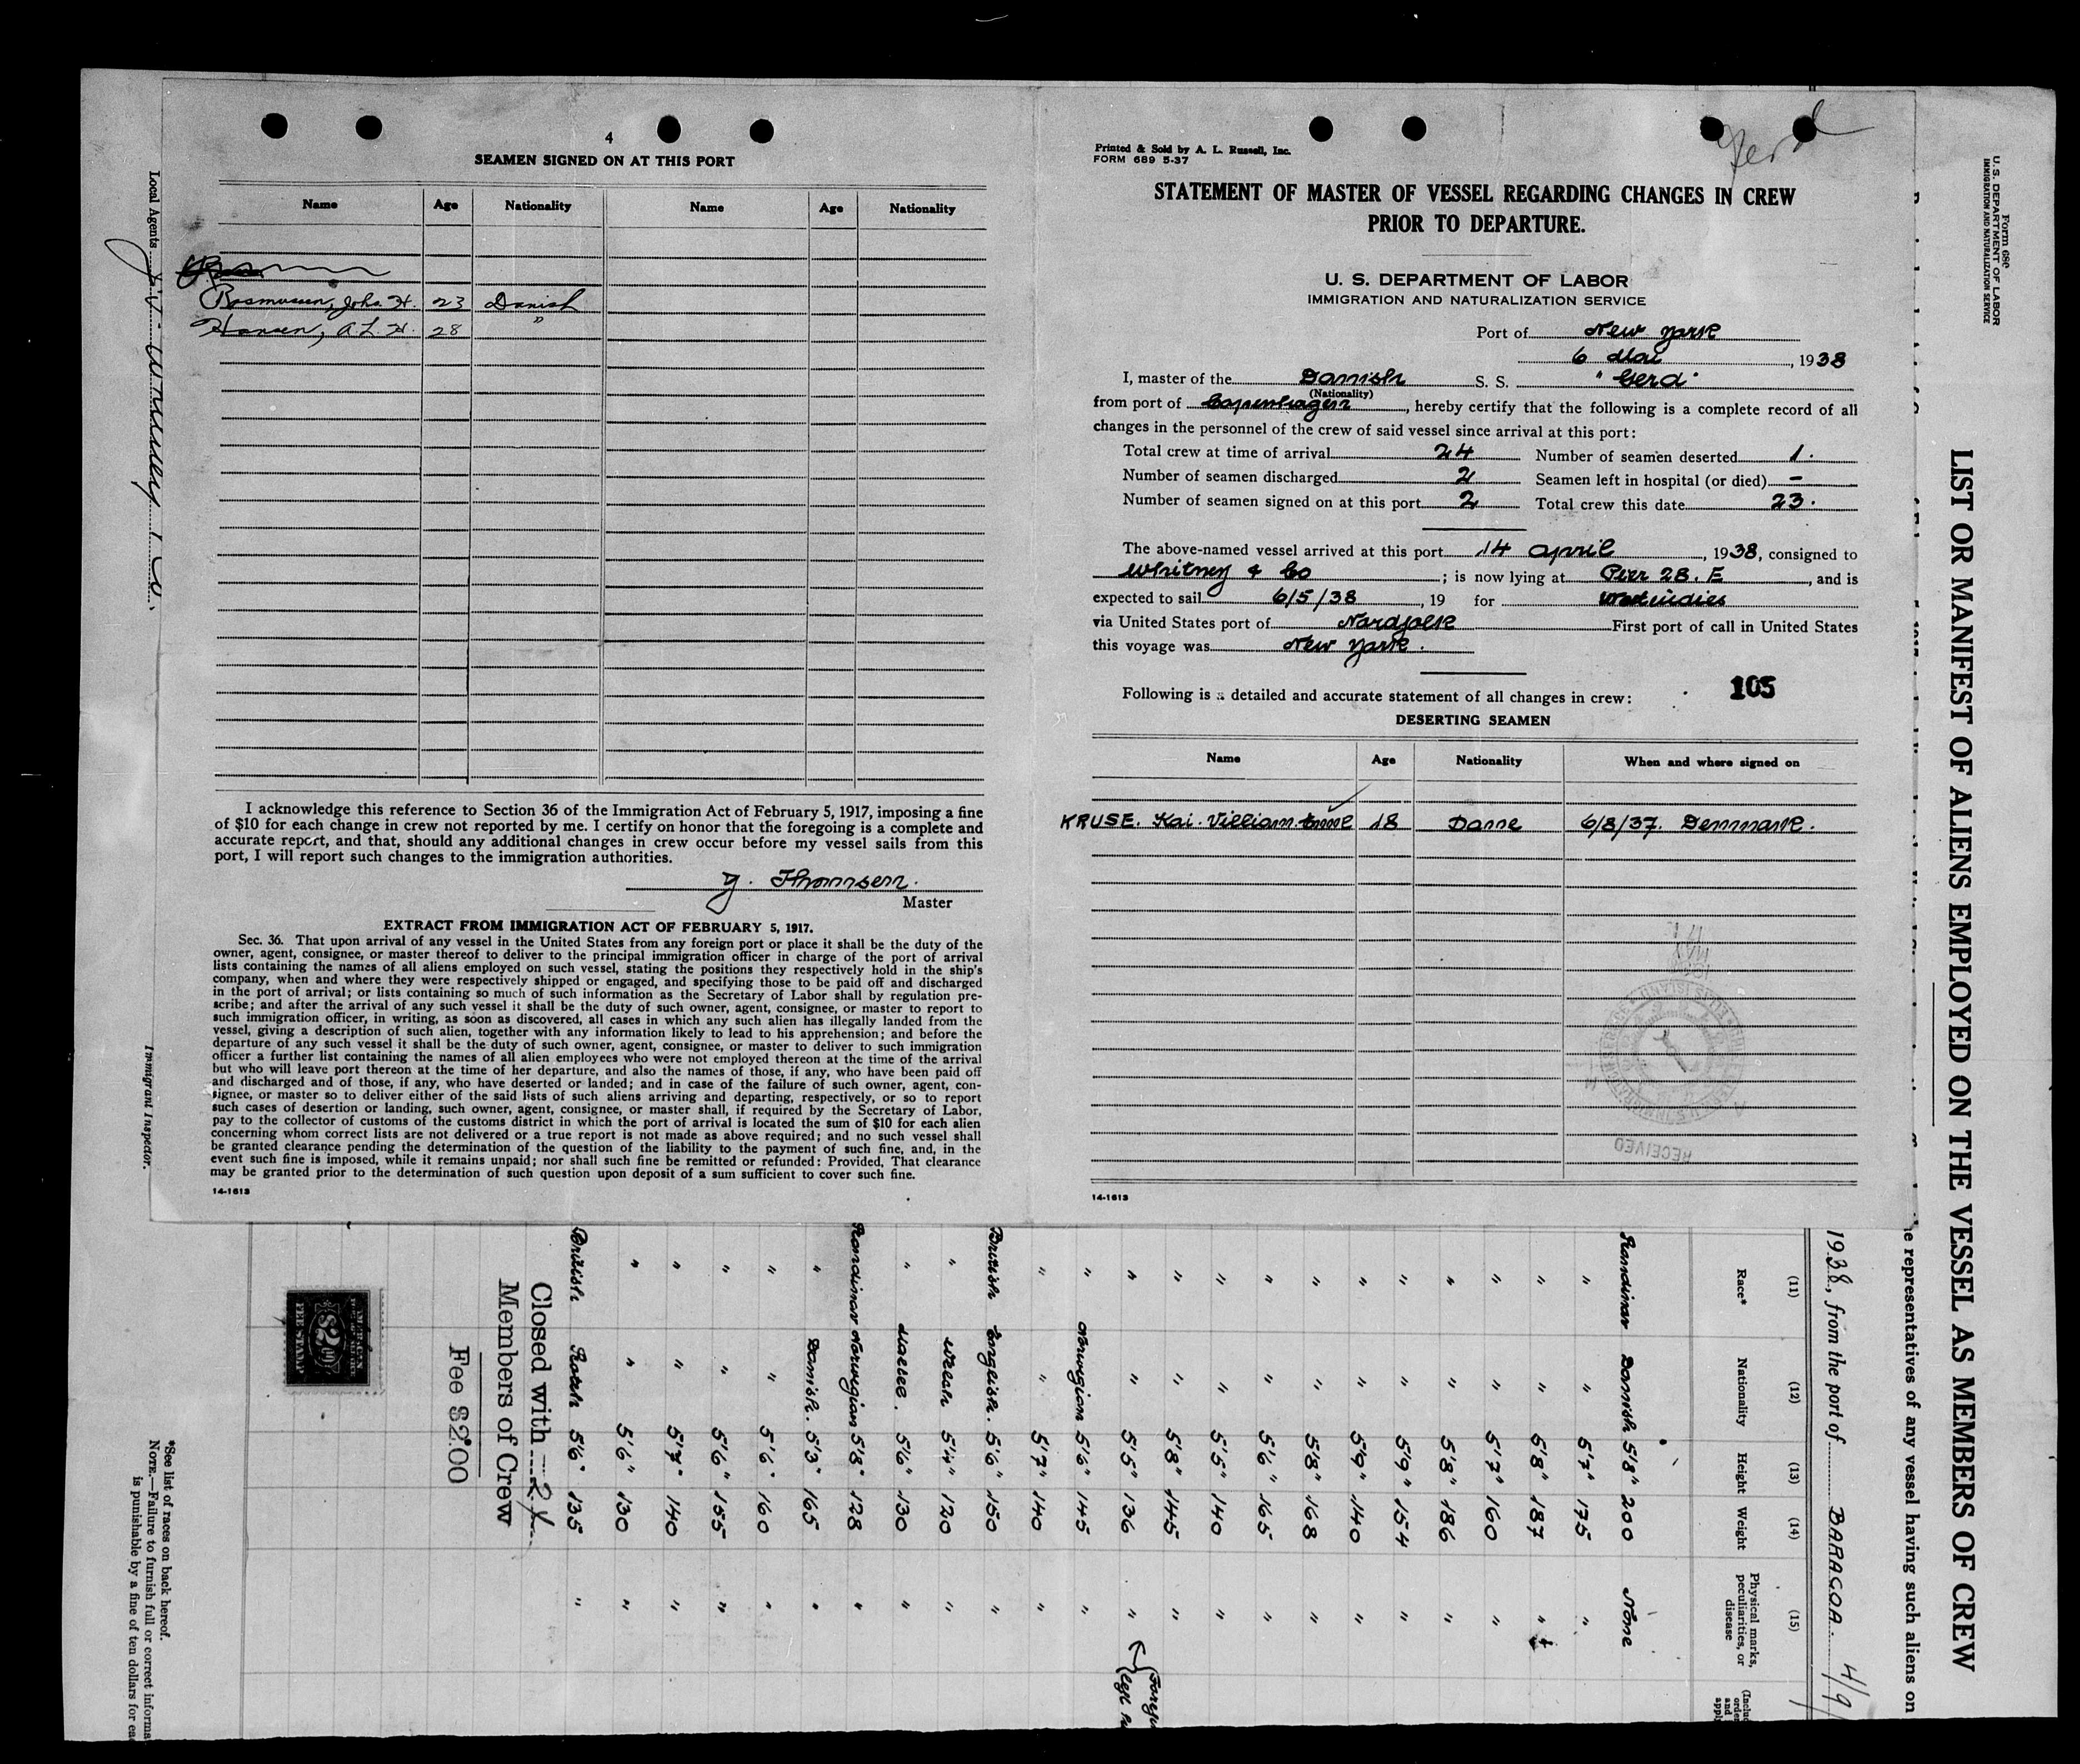 4
SEAMEN SIGNED ON AT THIS PORT
Name Age Nationality Name Age Nationality
Rasmussen, Johs. H. 23 Danish
Hansen, A. L. H. 28 "
I acknowledge this reference to Section 36 of the Immigration Act of February 5, 1917, imposing a fine
of $10 for each change in crew not reported by me. I certify on honor that the foregoing is a complete and
accurate report, and that, should any additional changes in crew occur before my vessel sails from this
port, I will report such changes to the immigration authorities.
Thomsen.
Master
EXTRACT FROM IMMIGRATION ACT OF FEBRUARY 5, 1917.
Sec. 36. That upon arrival of any vessel in the United States from any foreign port or place it shall be the duty of the
owner, agent, consignee, or master thereof to deliver to the principal immigration officer in charge of the port of arrival
lists containing the names of all aliens employed on such vessel, stating the positions they respectively hold in the ship's
company, when and where they were respectively shipped or engaged, and specifying those to be paid off and discharged
in the port of arrival; or lists containing so much of such information as the Secretary of Labor shall by regulation pre-
scribe; and after the arrival of any such vessel it shall be the duty of such owner, agent, consignee, or master to report to
such immigration officer, in writing, as soon as discovered, all cases in which any such alien has illegally landed from the
vessel, giving a description of such alien, together with any information likely to lead to his apprehension; and before the
departure of any such vessel it shall be the duty of such owner, agent, consignee, or master to deliver to such immigration
officer a further list containing the names of all alien employees who were not employed thereon at the time of the arrival
but who will leave port thereon at the time of her departure, and also the names of those, if any, who have been paid off
and discharged and of those, if any, who have deserted or landed; and in case of the failure of such owner, agent, con-
signee, or master so to deliver either of the said lists of such aliens arriving and departing, respectively, or so to report
such cases of desertion or landing, such owner, agent, consignee, or master shall, if required by the Secretary of Labor,
pay to the collector of customs of the customs district in which the port of arrival is located the sum of $10 for each alien
concerning whom correct lists are not delivered or a true report is not made as above required; and no such vessel shall
be granted clearance pending the determination of the question of the liability to the payment of such fine, and, in the
event such fine is imposed, while it remains unpaid; nor shall such fine be remitted or refunded: Provided, That clearance
may be granted prior to the determination of such question upon deposit of a sum sufficient to cover such fine.
14-1613
Local Agents
Immigrant Inspector.
Gerd
Printed & Sold by A. L. Russell, Inc.
FORM 689 5-37
STATEMENT OF MASTER OF VESSEL REGARDING CHANGES IN CREW
PRIOR TO DEPARTURE.
U. S. DEPARTMENT OF LABOR
IMMIGRATION AND NATURALIZATION SERVICE
Port of New York
6 Mai, 1938
I, master of the Danish S. S. "Gerd"
(Nationality)
from port of Copenhagen, hereby certify that the following is a complete record of all
changes in the personnel of the crew of said vessel since arrival at this port:
Total crew at time of arrival 24 Number of seamen deserted 1.
Number of seamen discharged 2 Seamen left in hospital (or died) -
Number of seamen signed on at this port 2 Total crew this date 23.
The above-named vessel arrived at this port 14 April, 1938, consigned to
Whitney & Co; is now lying at Pier 28. E, and is
expected to sail 6/5/38, 19 for Westindies
via United States port of Nordfolk First port of call in United States
this voyage was New York.
105
Following is a detailed and accurate statement of all changes in crew:
DESERTING SEAMEN
Name Age Nationality When and where signed on
KRUSE. Kai. Villiam. 18 Dane 6/8/37. Denmark.
RECEIVED
14-1613
Form 680
U. S. DEPARTMENT OF LABOR
IMMIGRATION AND NATURALIZATION SERVICE
LIST OR MANIFEST OF ALIENS EMPLOYED ON THE VESSEL AS MEMBERS OF CREW
representatives of any vessel having such aliens on
1938, from the port of BARACOA. 4/9
(11) (12) (13) (14) (15)
Race* Nationality Height Weight Physical marks, peculiarities, or disease
Skandinav Danish 5'8" 200 None
" " 5'7" 175 "
" " 5'8" 187 "
" " 5'7" 160 "
" " 5'8" 186 "
" " 5'9" 154 "
" " 5'9" 140 "
" " 5'8" 168 "
" " 5'6" 165 "
" " 5'5" 140 "
" " 5'8" 145 "
" " 5'5" 136 "
" Norwegian 5'6" 145 "
" " 5'7" 140 "
British English. 5'6" 150 "
" Welsh 5'4" 120 "
" 5'6" 130 "
Skandinav Norwegian 5'8" 128 "
" Danish. 5'3" 165 "
" " 5'6" 160 "
" " 5'6" 155 "
" " 5'7" 140 "
" " 5'6" 130 "
British Scotch 5'6" 135 "
Closed with
Members of Crew
Fee $2.00
*See list of races on back hereof.
NOTE.—Failure to furnish full or correct informa
is punishable by a fine of ten dollars for ea